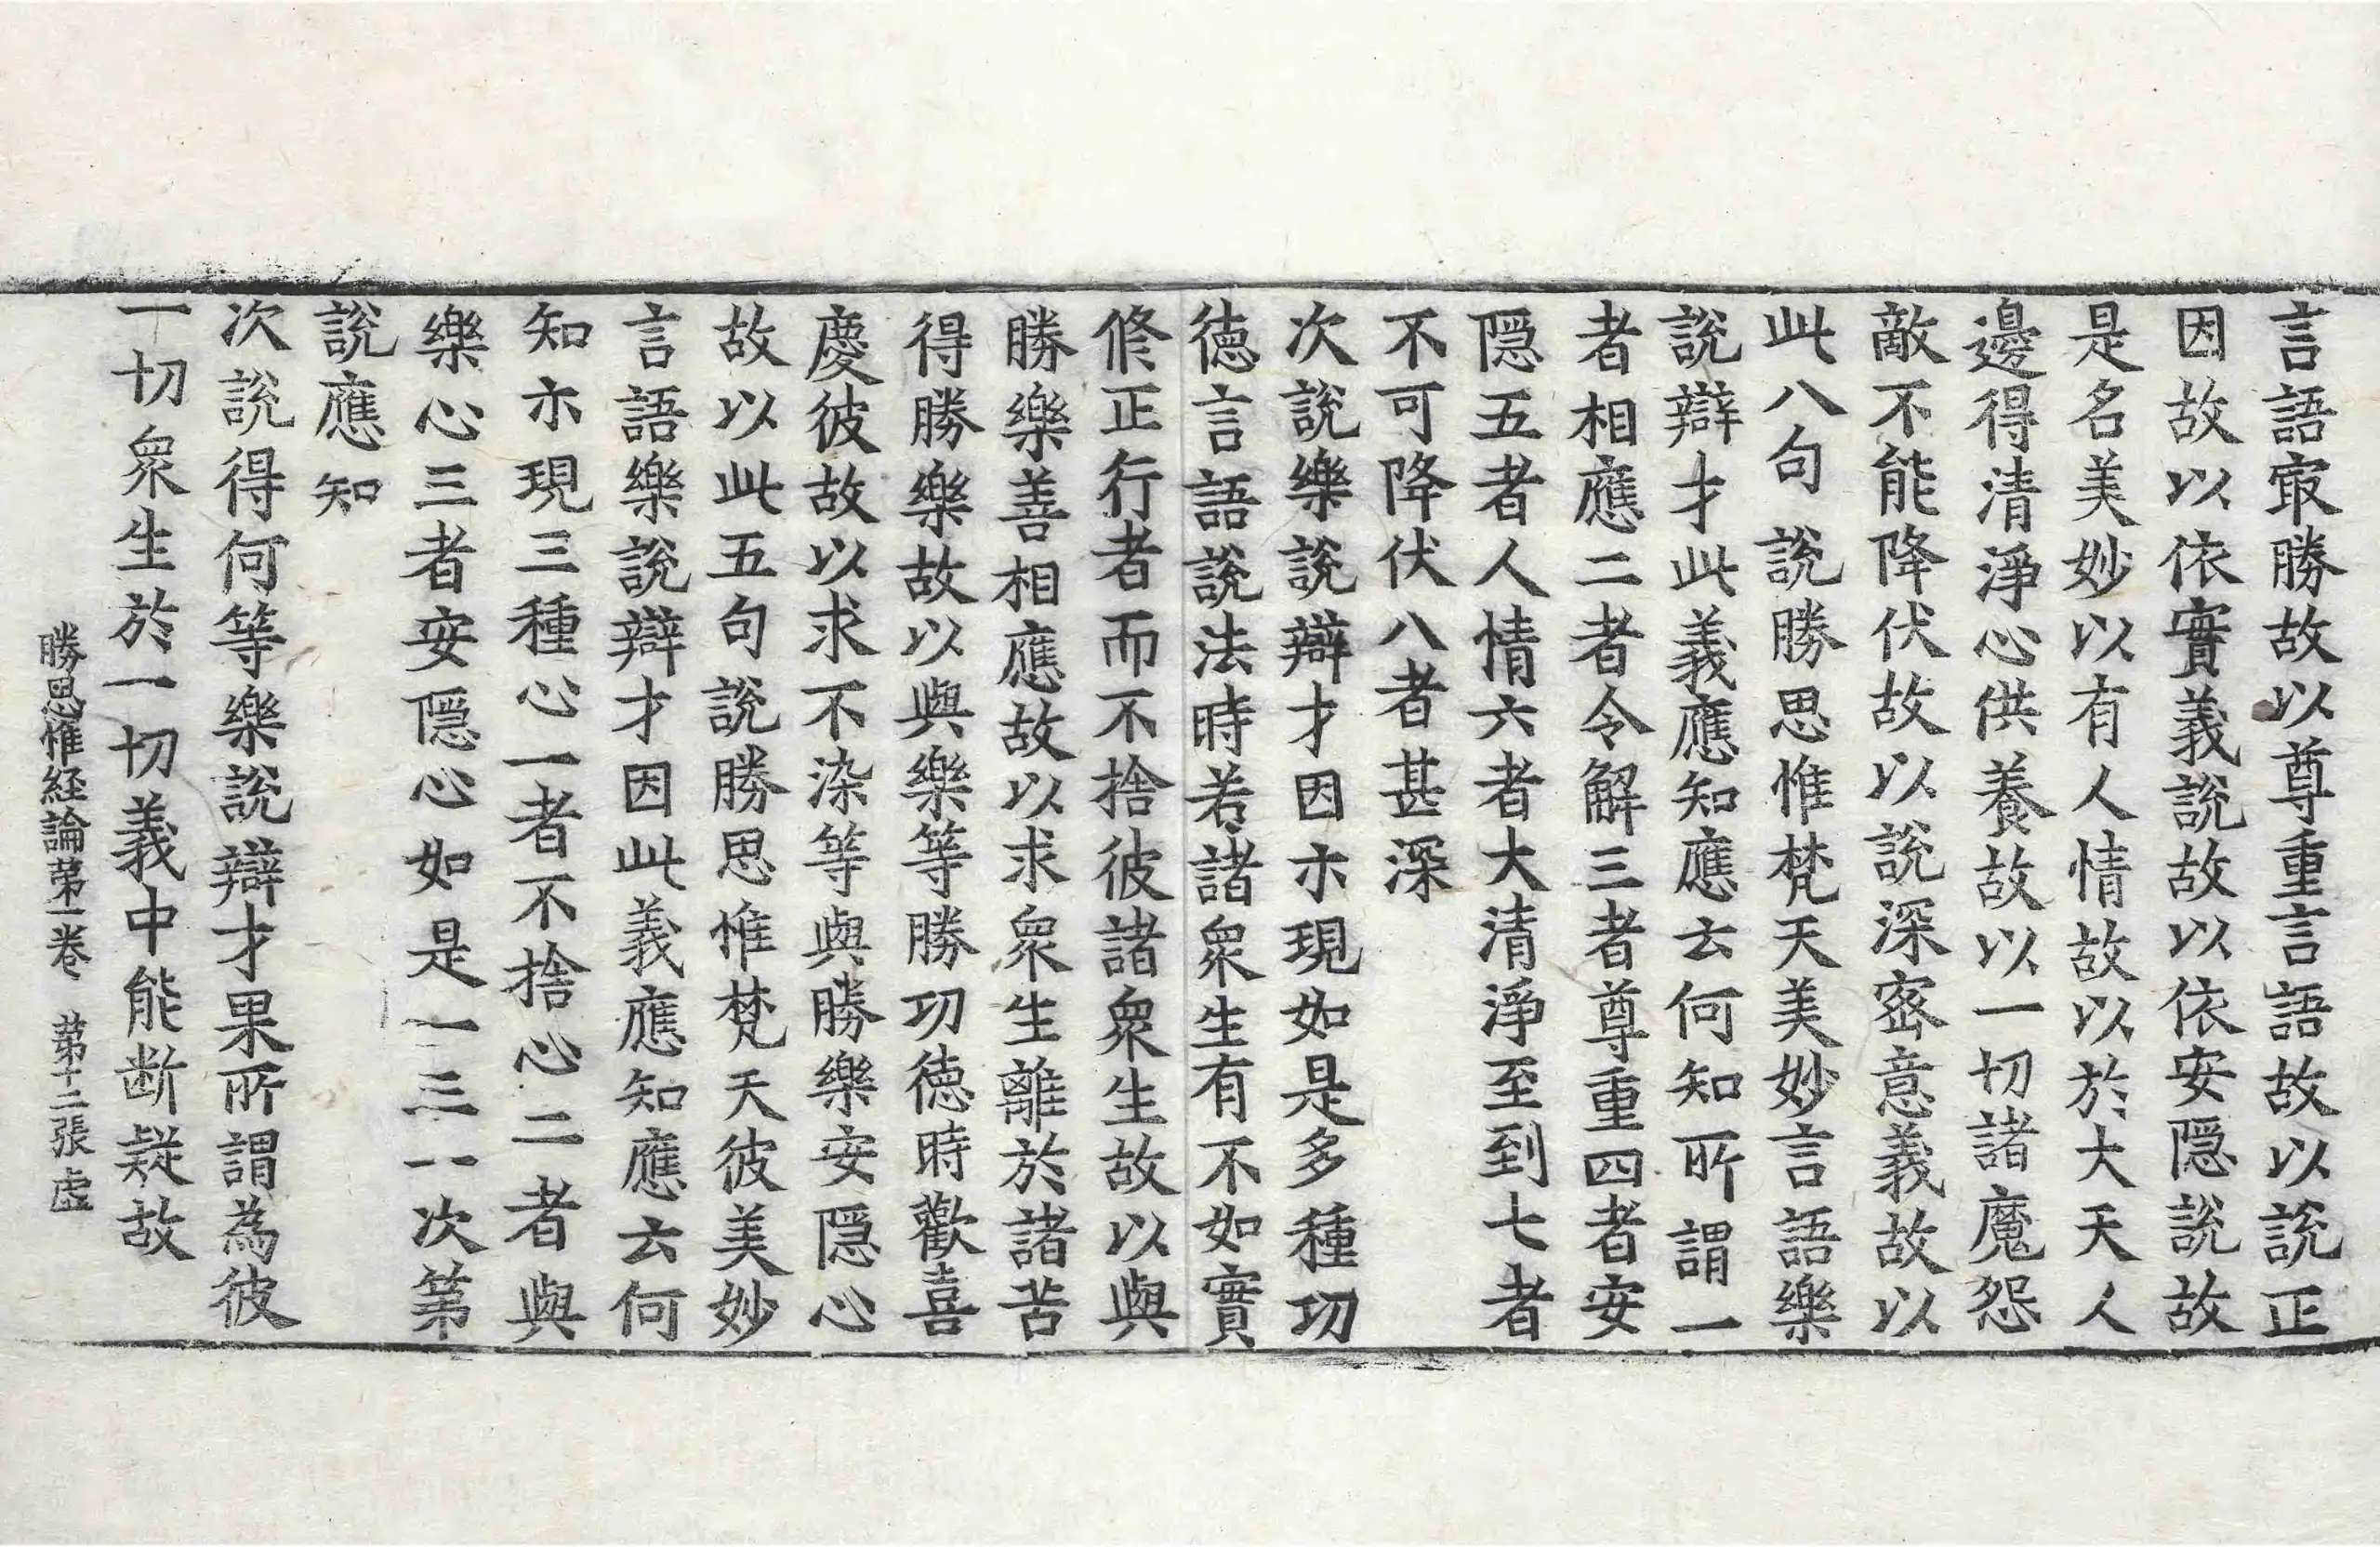 言語冣勝故以尊重言語故以說正
因故以依實義說故以依安隱說故
是名美妙以有人情故以於大天人
邊得清淨心供養故以一切諸魔怨
敵不能降伏故以說深密意義故以
此八句說勝思惟梵天美妙言語樂
說辯才此義應知應云何知所謂一
者相應二者令解三者尊重四者安
隱五者人情六者大清淨至到七者
不可降伏八者甚深
次說樂說辯才因亦現如是多種功
德言語說法時若諸衆生有不如實
修正行者而不捨彼諸衆生故以與
勝樂善相應故以求衆生離於諸苦
得勝樂故以與樂等勝功德時歡喜
慶彼故以求不染等與勝樂安隱心
故以此五句說勝思惟梵天彼美妙
言語樂說辯才因此義應知應云何
知亦現三種心一者不捨心二者與
樂心三者安隱心如是一三一次第
說應知
次說得何等樂說辯才果所謂為彼
一切衆生於一切義中能断疑故
勝思惟経論苐一卷 苐十二張 虛